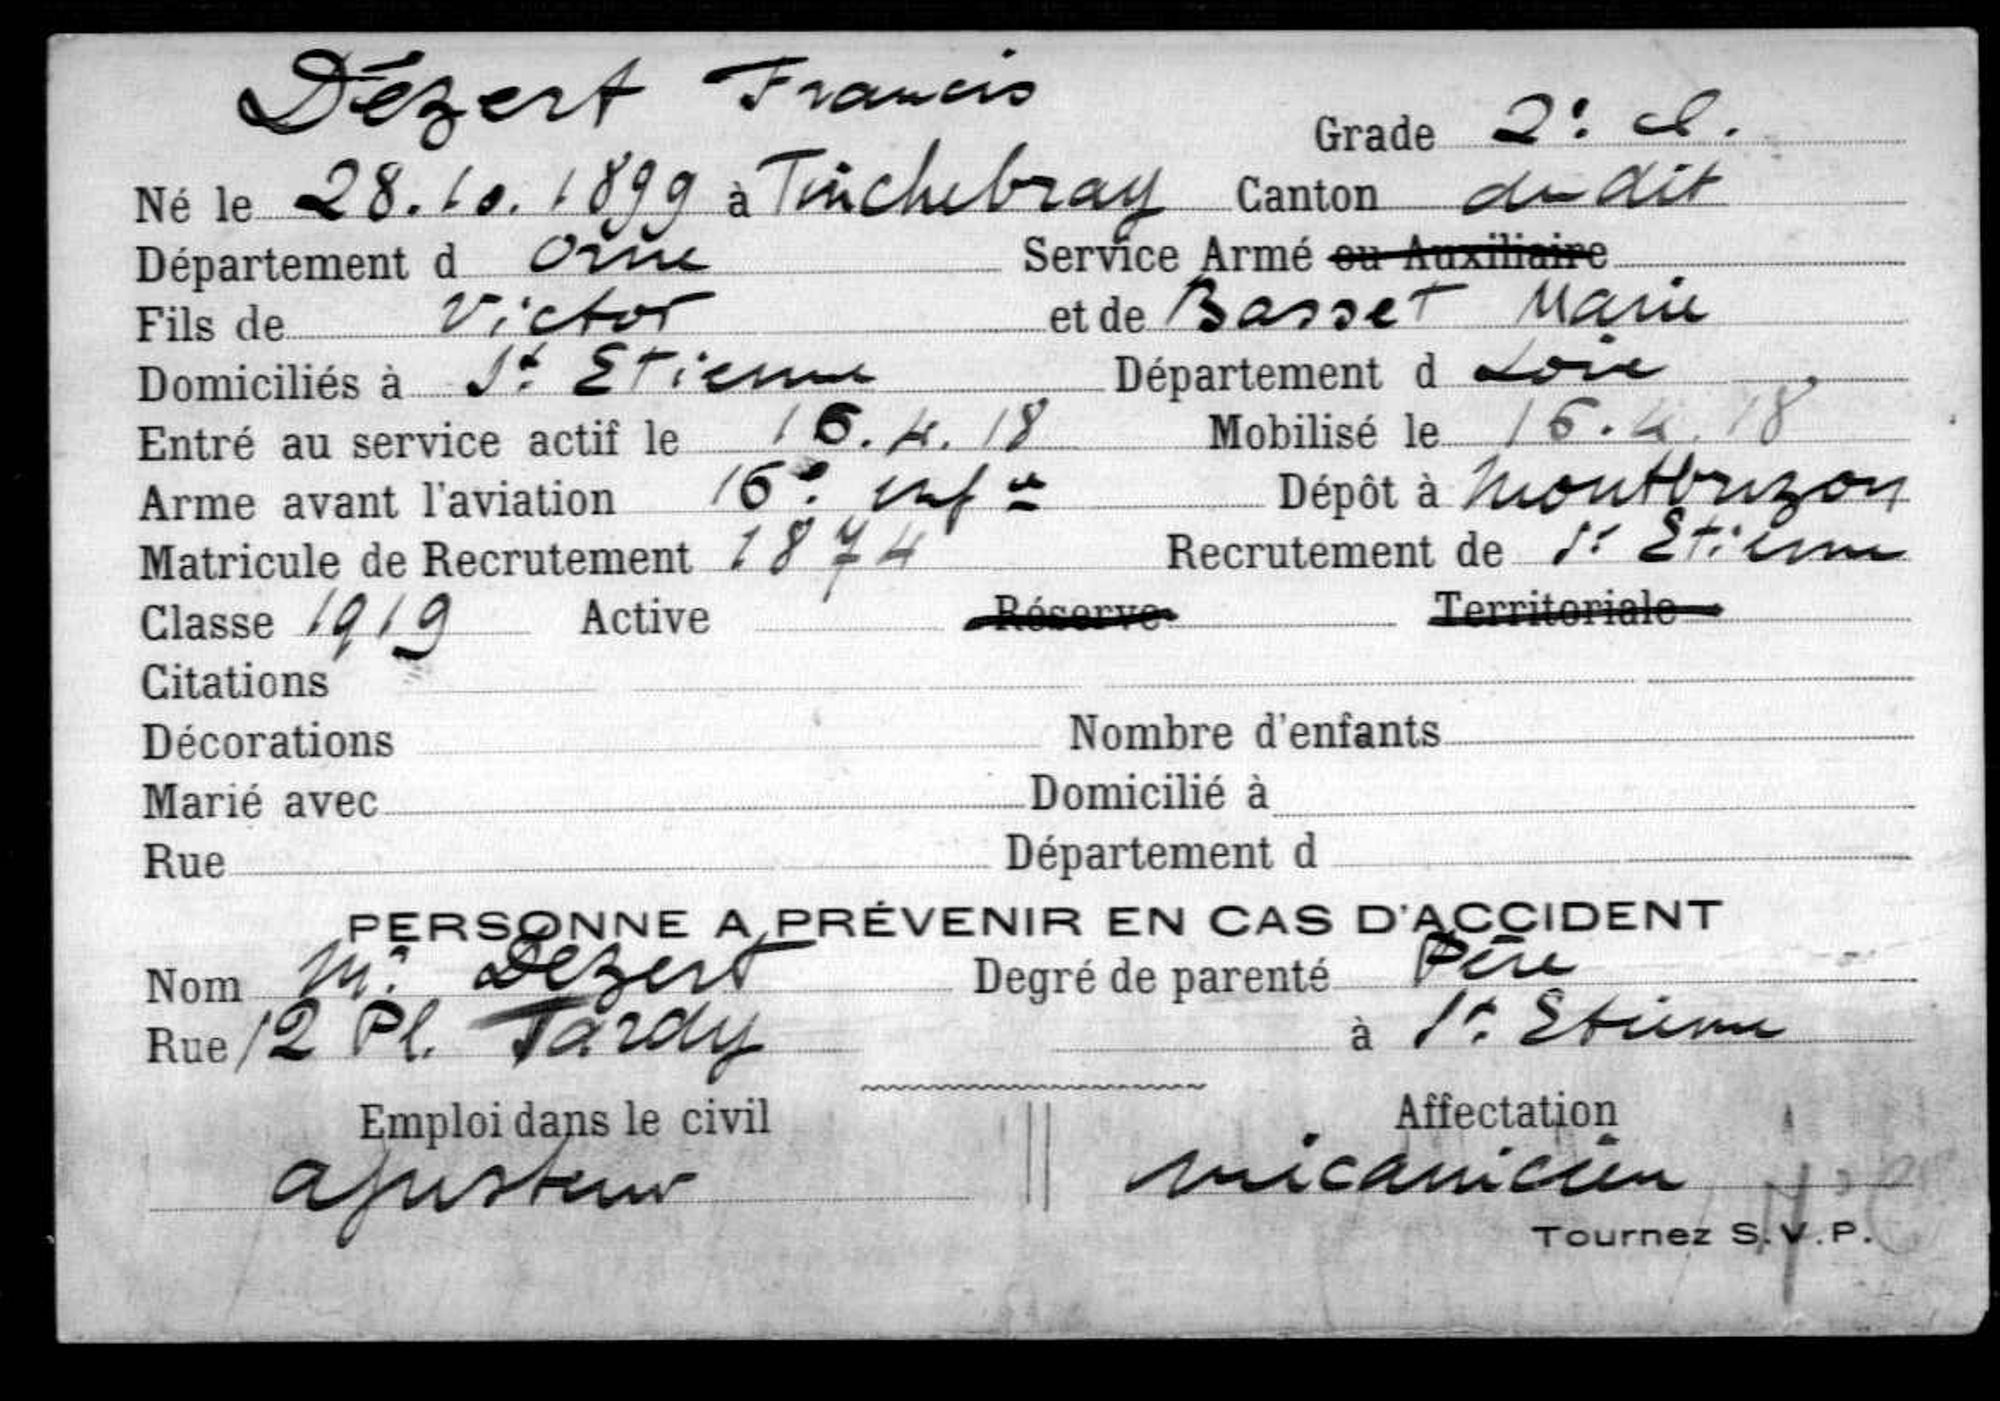 Dézert Francis
Grade 2e cl.
Né le 28.10.1899 à Tinchebray Canton du dit
Département d Orne Service Armé ou Auxiliaire
Fils de Victor et de Basset Marie
Domiciliés à St Etienne Département d Loire
Entré au service actif le 16.4.18 Mobilisé le 16.4.18
Arme avant l'aviation 16e infie Dépôt à Montbrizon
Matricule de Recrutement 1874 Recrutement de St Etienne
Classe 1919 Active Réserve Territoriale
Citations
Décorations Nombre d'enfants
Marié avec Domicilié à
Rue Département d
PERSONNE A PRÉVENIR EN CAS D'ACCIDENT
Nom Mr Dézert Degré de parenté Père
Rue 12 Pl. Tardy à St Etienne
Emploi dans le civil Affectation
ajusteur mécanicien
Tournez S.V.P.